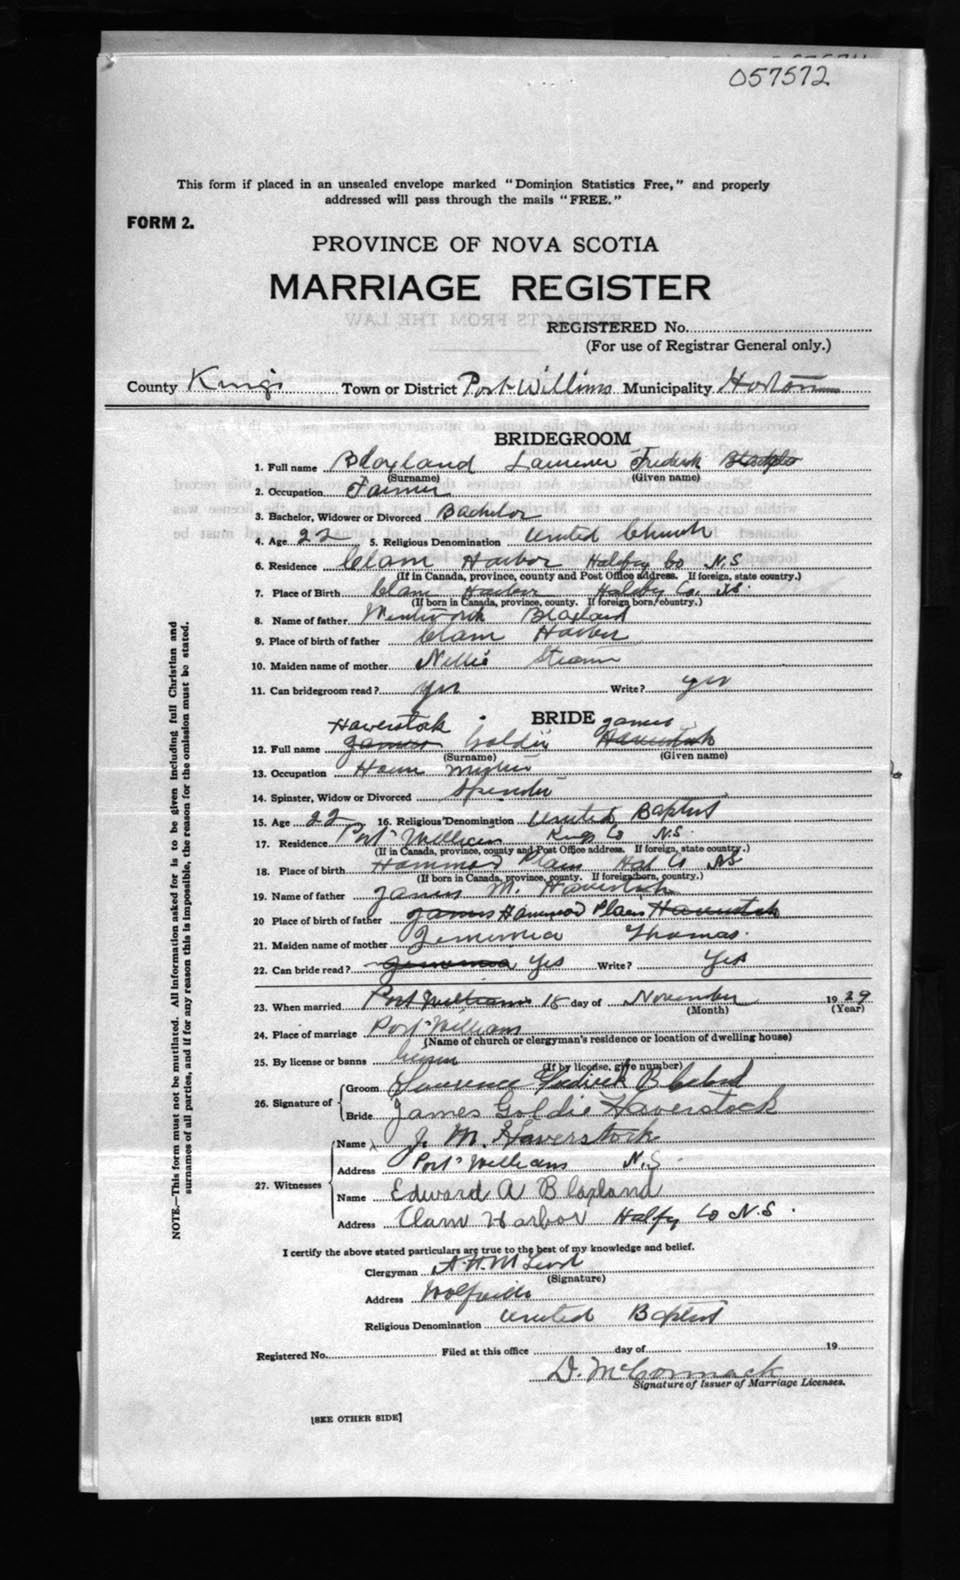 057572
This form if placed in an unsealed envelope marked "Dominion Statistics Free," and properly
addressed will pass through the mails "FREE."
FORM 2.
PROVINCE OF NOVA SCOTIA
MARRIAGE REGISTER
REGISTERED No.
(For use of Registrar General only.)
County Kings Town or District Port Williams Municipality Horton
BRIDEGROOM
1. Full name Blaxland Laurence Fredrick
(Surname) (Given name)
2. Occupation Farmer
3. Bachelor, Widower or Divorced Bachelor
4. Age 22 5. Religious Denomination United Church
6. Residence Clam Harbor Halifax Co N.S
(If in Canada, province, county and Post Office address. If foreign, state country.)
7. Place of Birth Clam Harbor Halifax Co. N.S.
(If born in Canada, province, county. If foreign born, country.)
8. Name of father Wentworth Blaxland
9. Place of birth of father Clam Harbor
10. Maiden name of mother Nellie
11. Can bridegroom read? yes Write? yes
BRIDE
Haverstock James
12. Full name James Goldie Haverstock
(Surname) (Given name)
13. Occupation Home
14. Spinster, Widow or Divorced Spinster
15. Age 22 16. Religious Denomination United Baptist
17. Residence Port Williams Kings Co N.S.
(If in Canada, province, county and Post Office address. If foreign, state country.)
18. Place of birth Hammond Plains Hal Co NS
(If born in Canada, province, county. If foreign born, country.)
19. Name of father James M. Haverstock
20 Place of birth of father James Hammond Plains Haverstock
21. Maiden name of mother Jemimia Thomas.
22. Can bride read? Jemimia Yes Write? Yes
23. When married Port Williams 18 day of November 1929
(Month) (Year)
24. Place of marriage Port Williams
(Name of church or clergyman's residence or location of dwelling house)
25. By license or banns license
(If by license, give number)
26. Signature of
Groom Lawrence Fredrick Blaxland
Bride James Goldie Haverstock
27. Witnesses
Name J. M. Haverstock
Address Port Williams N.S.
Name Edward A Blaxland
Address Clam Harbor Halfx Co N.S.
I certify the above stated particulars are true to the best of my knowledge and belief.
Clergyman
(Signature)
Address Wolfville
Religious Denomination United Baptist
Registered No. Filed at this office day of 19
D. McCormack
Signature of Issuer of Marriage Licenses.
[SEE OTHER SIDE]
NOTE.—This form must not be mutilated. All information asked for is to be given including full Christian and
surnames of all parties, and if for any reason this is impossible, the reason for the omission must be stated.